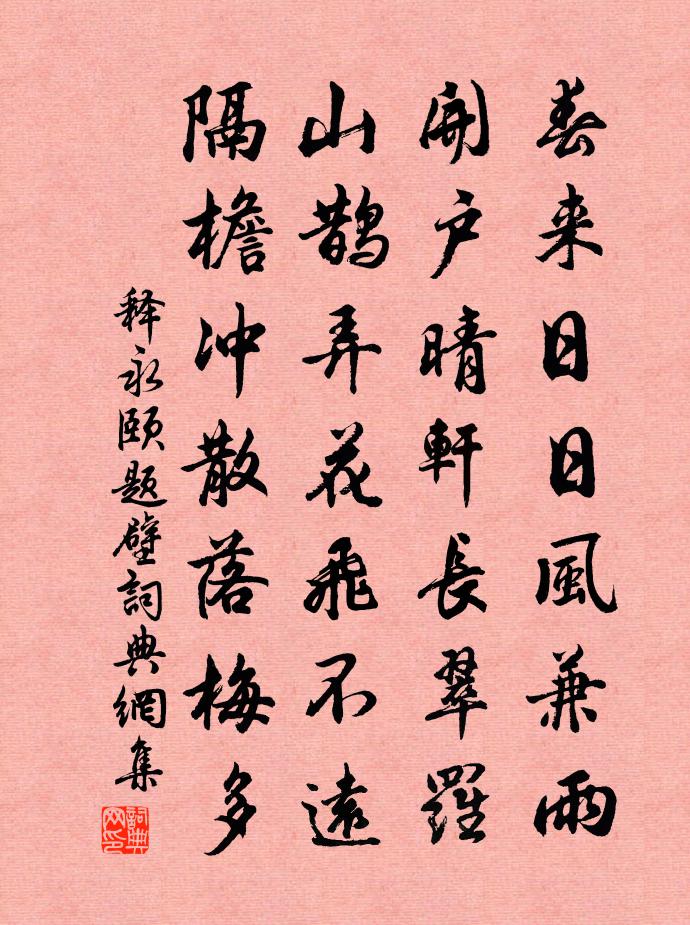 春来日日風兼雨
開户晴軒長翠羅
山鵲弄花飛不遠
隔檐冲散落梅多
释永颐题壁詞典網集
詞典网印